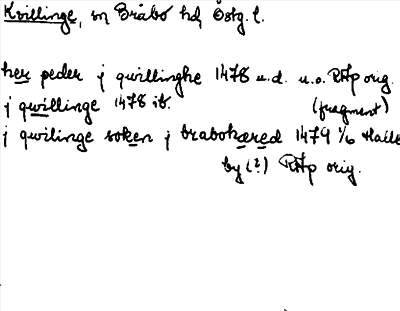 Kvillinge, sn Bråbo hd, Östg. l.
her peder j qwillinghe 1478 u.d. u.o. RAp orig.
j qwillinge 1478 ib. (fragment)
j qwilinge soken j brabohæred 1479 1/6 Haile
by (?) RAp orig.